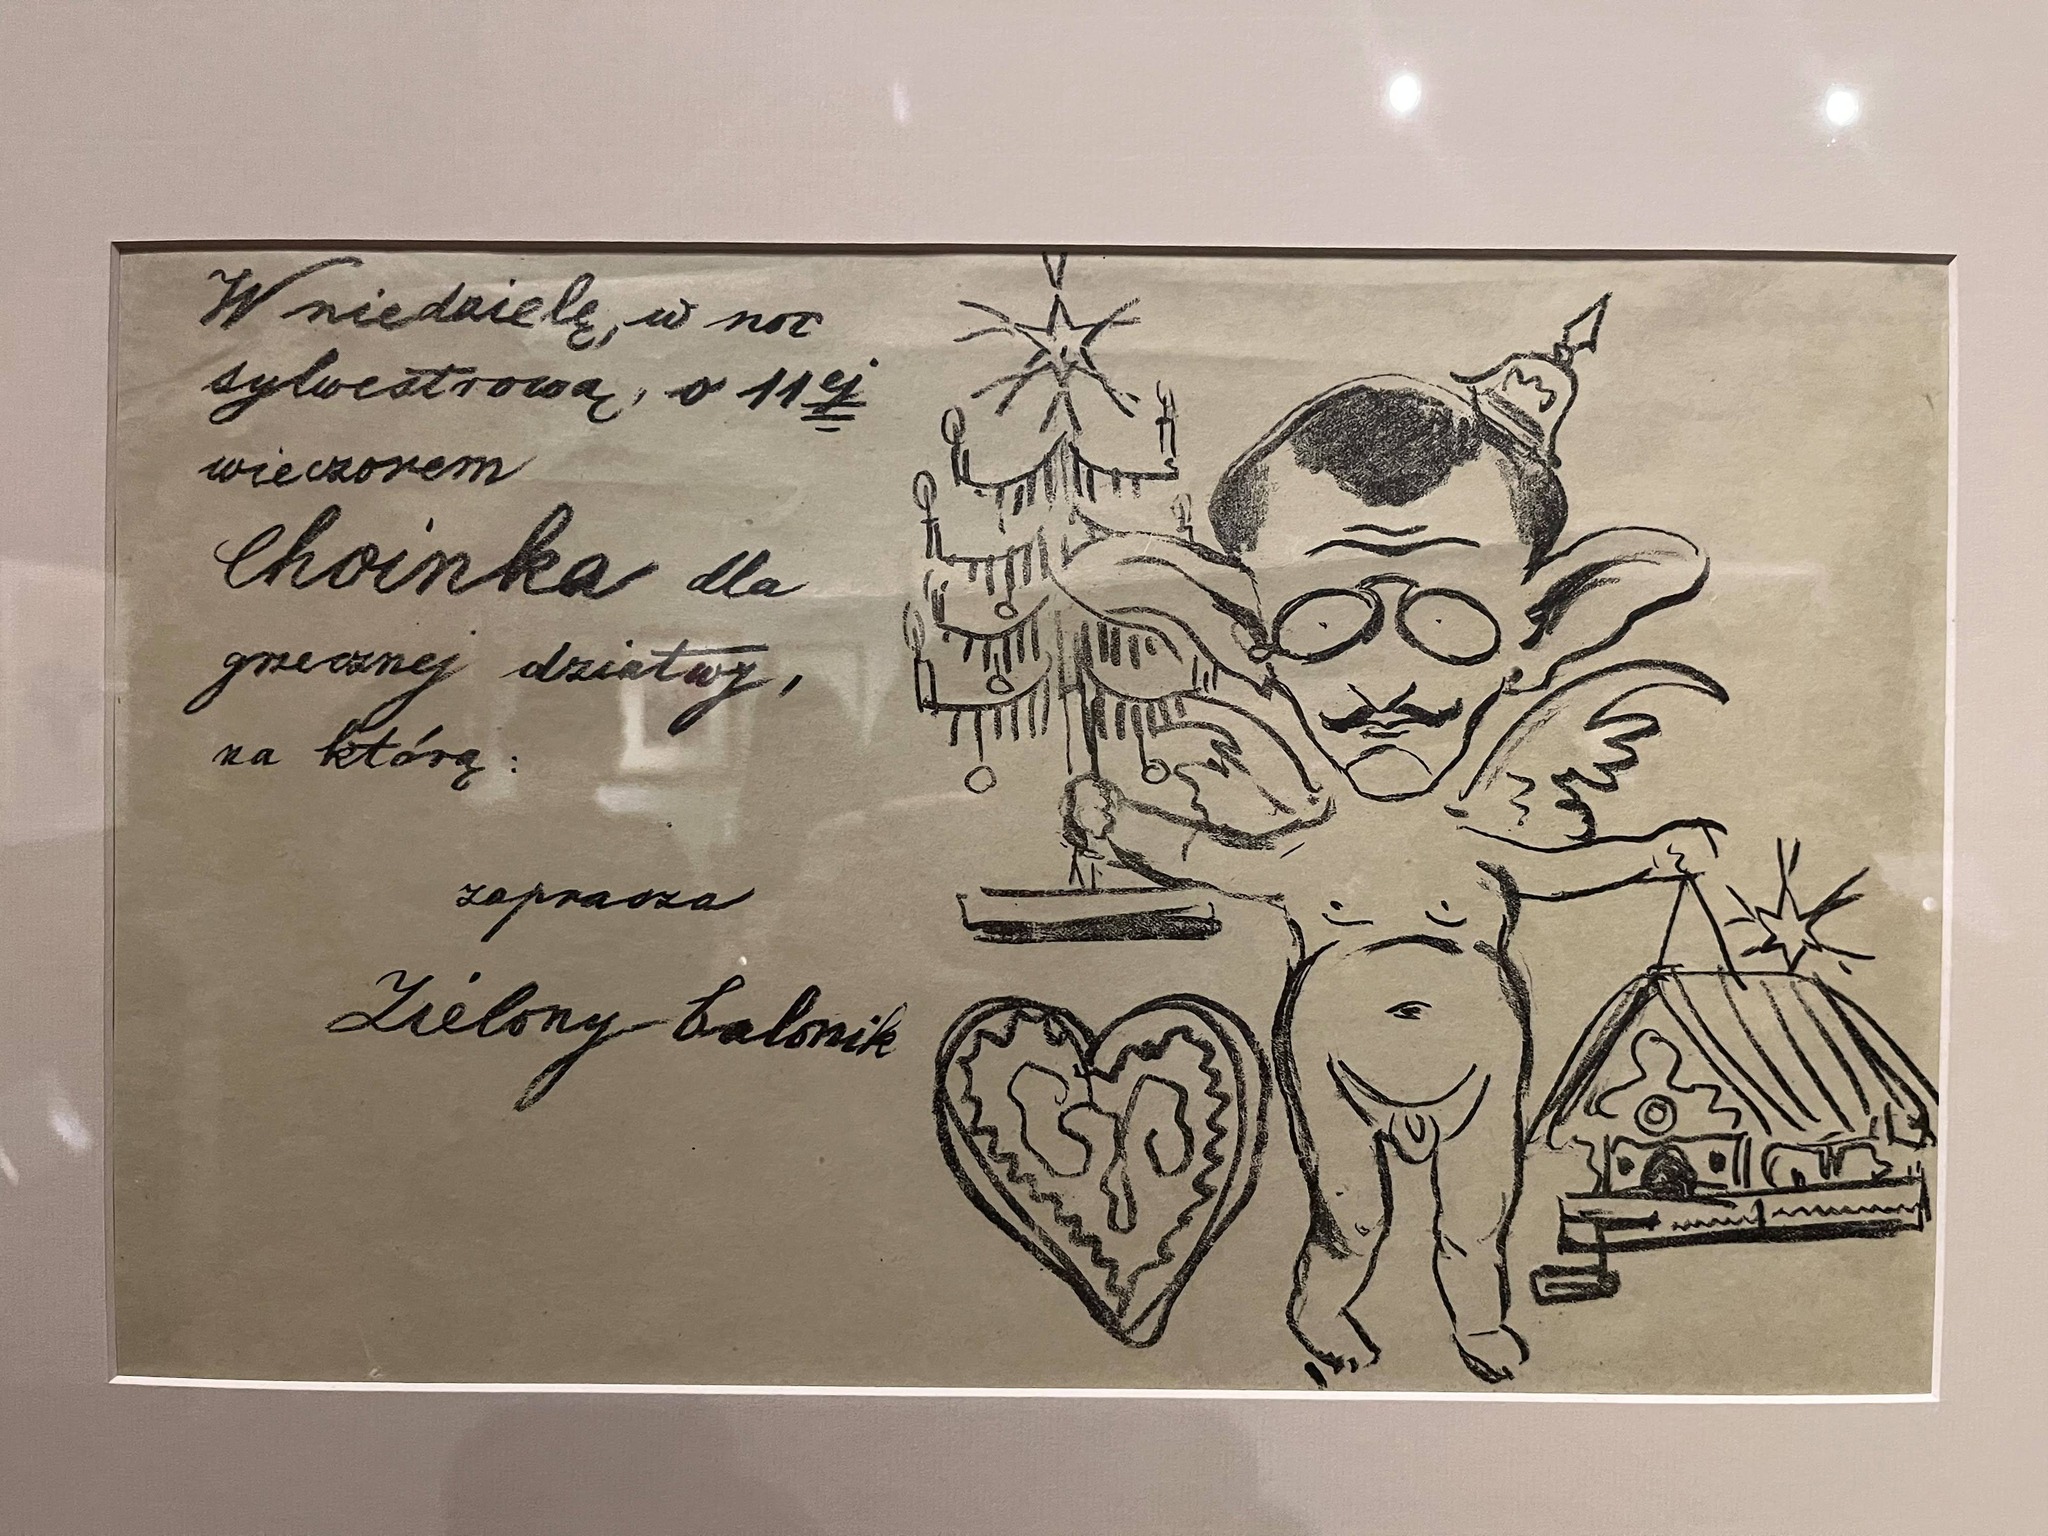 W niedzielę, w noc
sylwestrową, o 11ej
wieczorem
Choinka dla
grzecznej dziatwy,
na którą:
zaprasza
Zielony Balonik